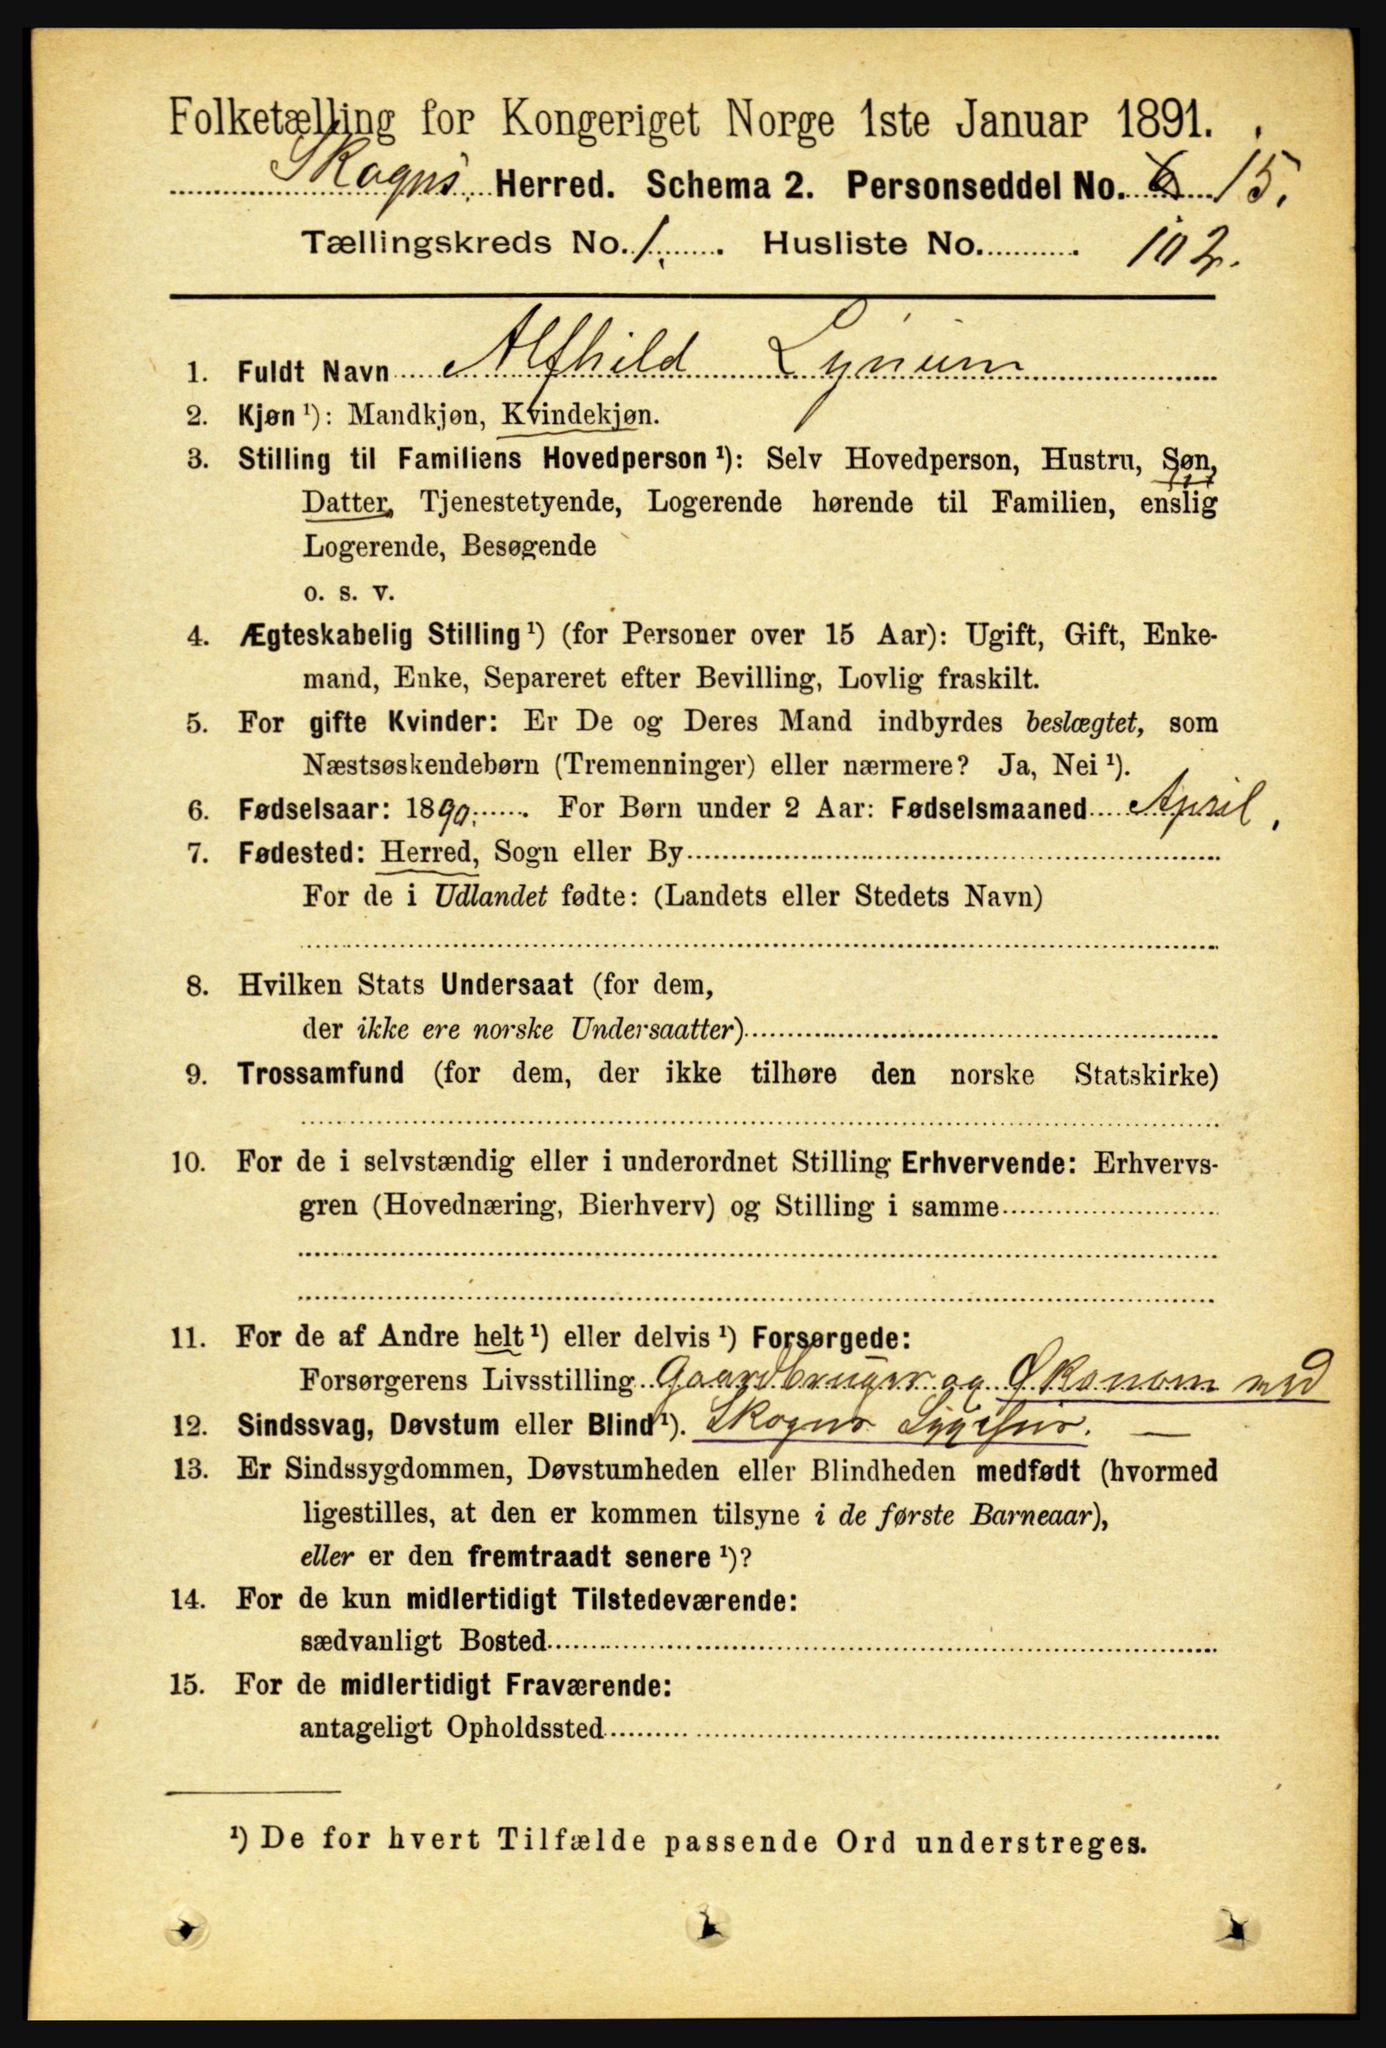 Folketælling for Kongeriget Norge 1ste Januar 1891.
Skogns Herred. Schema 2. Personseddel No. 15.
Tællingskreds No. 1. Husliste No. 102.
1. Fuldt Navn Alfhild Lynum
2. Kjøn ¹): Mandkjøn, Kvindekjøn.
3. Stilling til Familiens Hovedperson ¹): Selv Hovedperson, Hustru, Søn,
Datter, Tjenestetyende, Logerende hørende til Familien, enslig
Logerende, Besøgende
o. s. v.
4. Ægteskabelig Stilling ¹) (for Personer over 15 Aar): Ugift, Gift, Enke-
mand, Enke, Separeret efter Bevilling, Lovlig fraskilt.
5. For gifte Kvinder: Er De og Deres Mand indbyrdes beslægtet, som
Næstsøskendebørn (Tremenninger) eller nærmere? Ja, Nei ¹).
6. Fødselsaar: 1890. For Børn under 2 Aar: Fødselsmaaned April.
7. Fødested: Herred, Sogn eller By
For de i Udlandet fødte: (Landets eller Stedets Navn)
8. Hvilken Stats Undersaat (for dem,
der ikke ere norske Undersaatter)
9. Trossamfund (for dem, der ikke tilhøre den norske Statskirke)
10. For de i selvstændig eller i underordnet Stilling Erhvervende: Erhvervs-
gren (Hovednæring, Bierhverv) og Stilling i samme
11. For de af Andre helt ¹) eller delvis ¹) Forsørgede:
Forsørgerens Livsstilling Gaardbruger og Økonom ved
12. Sindssvag, Døvstum eller Blind ¹). Skogns Sygehus. —
13. Er Sindssygdommen, Døvstumheden eller Blindheden medfødt (hvormed
ligestilles, at den er kommen tilsyne i de første Barneaar),
eller er den fremtraadt senere ¹)?
14. For de kun midlertidigt Tilstedeværende:
sædvanligt Bosted
15. For de midlertidigt Fraværende:
antageligt Opholdssted
¹) De for hvert Tilfælde passende Ord understreges.